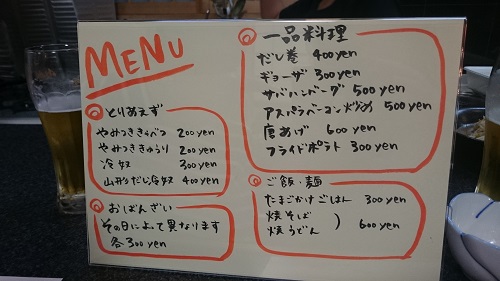 MENU
とりあえず
やみつきキャベツ 200yen
やみつききゅうり 200yen
冷奴 300yen
山形だし冷奴 400yen
おばんざい
その日によって異なります
各300yen
一品料理
だし巻 400yen
ギョーザ 300yen
サバハンバーグ 500yen
アスパラベーコン炒め 500yen
唐あげ 600yen
フライドポテト 300yen
ご飯・麺
たまごかけごはん 300yen
焼そば
焼うどん ) 600yen